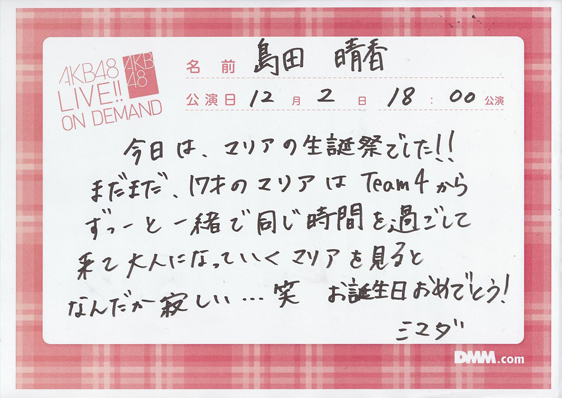 AKB48
LIVE!!
ON DEMAND
AKB
48
名前 島田 晴香
公演日 12月2日 18:00公演
今日は、マリアの生誕祭でした!!
まだまだ、17才のマリアはTeam4から
ずっーと一緒で同じ時間を過ごして
来て大人になっていくマリアを見ると
なんだか寂しい…笑 お誕生日おめでとう!
シマダ
DMM.com